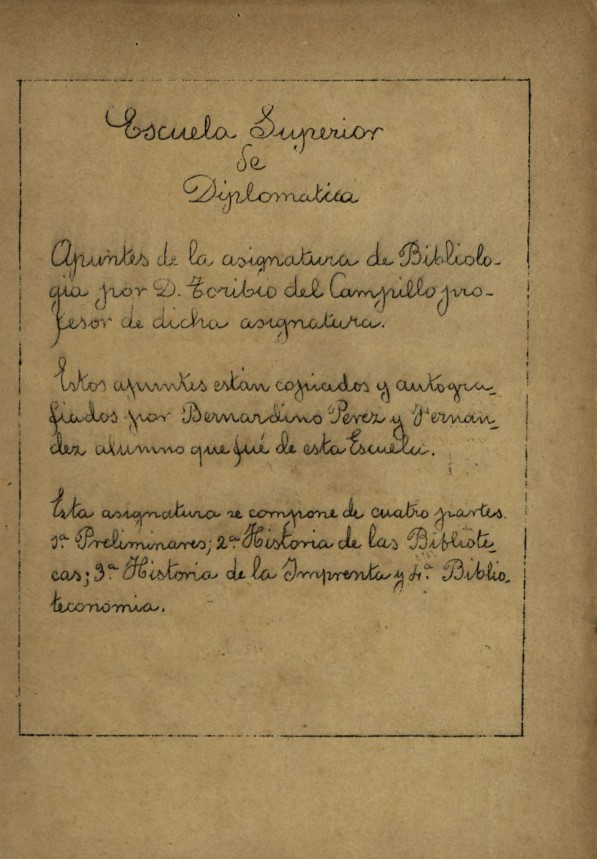 Escuela Superior
de
Diplomatica
Apuntes de la asignatura de Bibliolo-
gia por D. Toribio del Campillo pro-
fesor de dicha asignatura.
Estos apuntes están copiados y autogra-
fiados por Bernardino Perez y Fernan-
dez alumno que fué de esta Escuela.
Esta asignatura se compone de cuatro partes.
1ª Preliminares; 2ª Historia de las Bibliote-
cas; 3ª Historia de la Imprenta y 4ª Biblio-
teconomia.